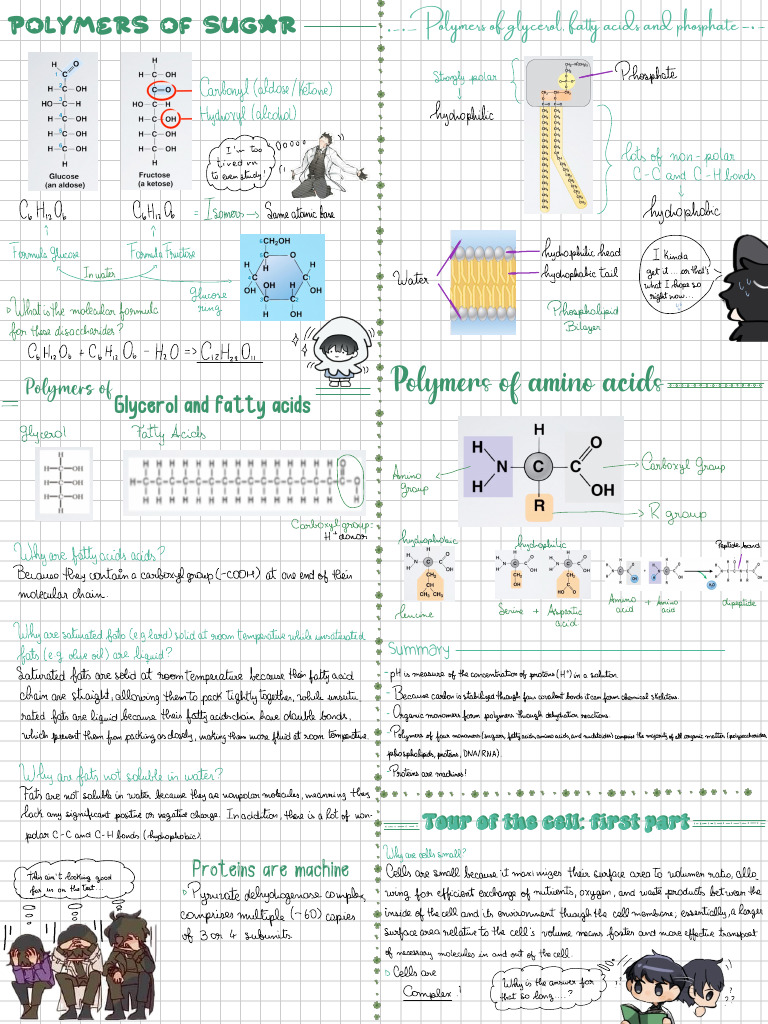 POLYMERS OF SUGAR
Glucose
(an aldose)
Fructose
(a ketose)
Carbonyl (aldose/ketone)
Hydroxyl (alcohol)
I'm too
tired
to even study!
C₆H₁₂O₆
C₆H₁₂O₆ = Isomers → Same atomic base
Formula Glucose
Formula Fructose
In water
Glucose
ring
CH₂OH
What is the molecular formula
for these disaccharides?
C₆H₁₂O₆ + C₆H₁₂O₆ - H₂O => C₁₂H₂₂O₁₁
Polymers of
Glycerol and fatty acids
Glycerol
Fatty Acids
Carboxyl group:
H⁺ donor
Why are fatty acids acids?
Because they contain a carboxyl group (-COOH) at one end of their
molecular chain.
Why are saturated fats (e.g lard) solid at room temperature while unsaturated
fats (e.g olive oil) are liquid?
Saturated fats are solid at room temperature because their fatty acid
chain are straight, allowing them to pack tightly together, while unsatu
rated fats are liquid because their fatty acid chain have double bonds,
which prevent them from packing as closely, making them more fluid at room temperature.
Why are fats not soluble in water?
Fats are not soluble in water because they are nonpolar molecules, meanning they
lack any significant positive or negative charge. In adiction, there is a lot of non-
polar C-C and C-H bonds (hydrophobic).
This ain't looking good
for us on the test...
Proteins are machine
Pyruvate dehydogenase complex,
comprises multiple (~60) copies
of 3 or 4 subunits
Polymers of glycerol, fatty acids and phosphate
Strongly polar
hydrophilic
Phosphate
lots of non-polar
C-C and C-H bonds
hydrophobic
Water
hydrophilic head
hydrophobic tail
Phospholipid
Bilayer
I kinda
get it... or that's
what I hope so
right now...
Polymers of amino acids
Amino
group
Carboxyl Group
R group
hydrophobic
hydrophilic
leucine
Serine + Aspartic
acid
Peptide bond
Amino
acid
+
Amino
acid
dipeptide
Summary
- pH is measure of the concentration of protons (H⁺) in a solution.
- Because carbon is stabilized through four covalent bonds it can form chemical skeletons.
- Organic monomers form polymers through dehydration reactions.
- Polymers of four monomers (sugars, fatty acids, amino acids, and nucleotides) compose the majority of all organic matter (polysaccharides,
phospholipids, proteins, DNA/RNA)
- Proteins are machines!
Tour of the cell: first part
Why are cells small?
Cells are small because it maximizes their surface area to volumen ratio, allo
wing for efficient exchange of nutrients, oxygen, and waste products between the
inside of the cell and its environment through the cell membrane; essentially, a larger
surface area relative to the cell's volume means faster and more effective transport
of necessary molecules in and out of the cell
Cells are
Complex!
Why is the answer for
that so long....?